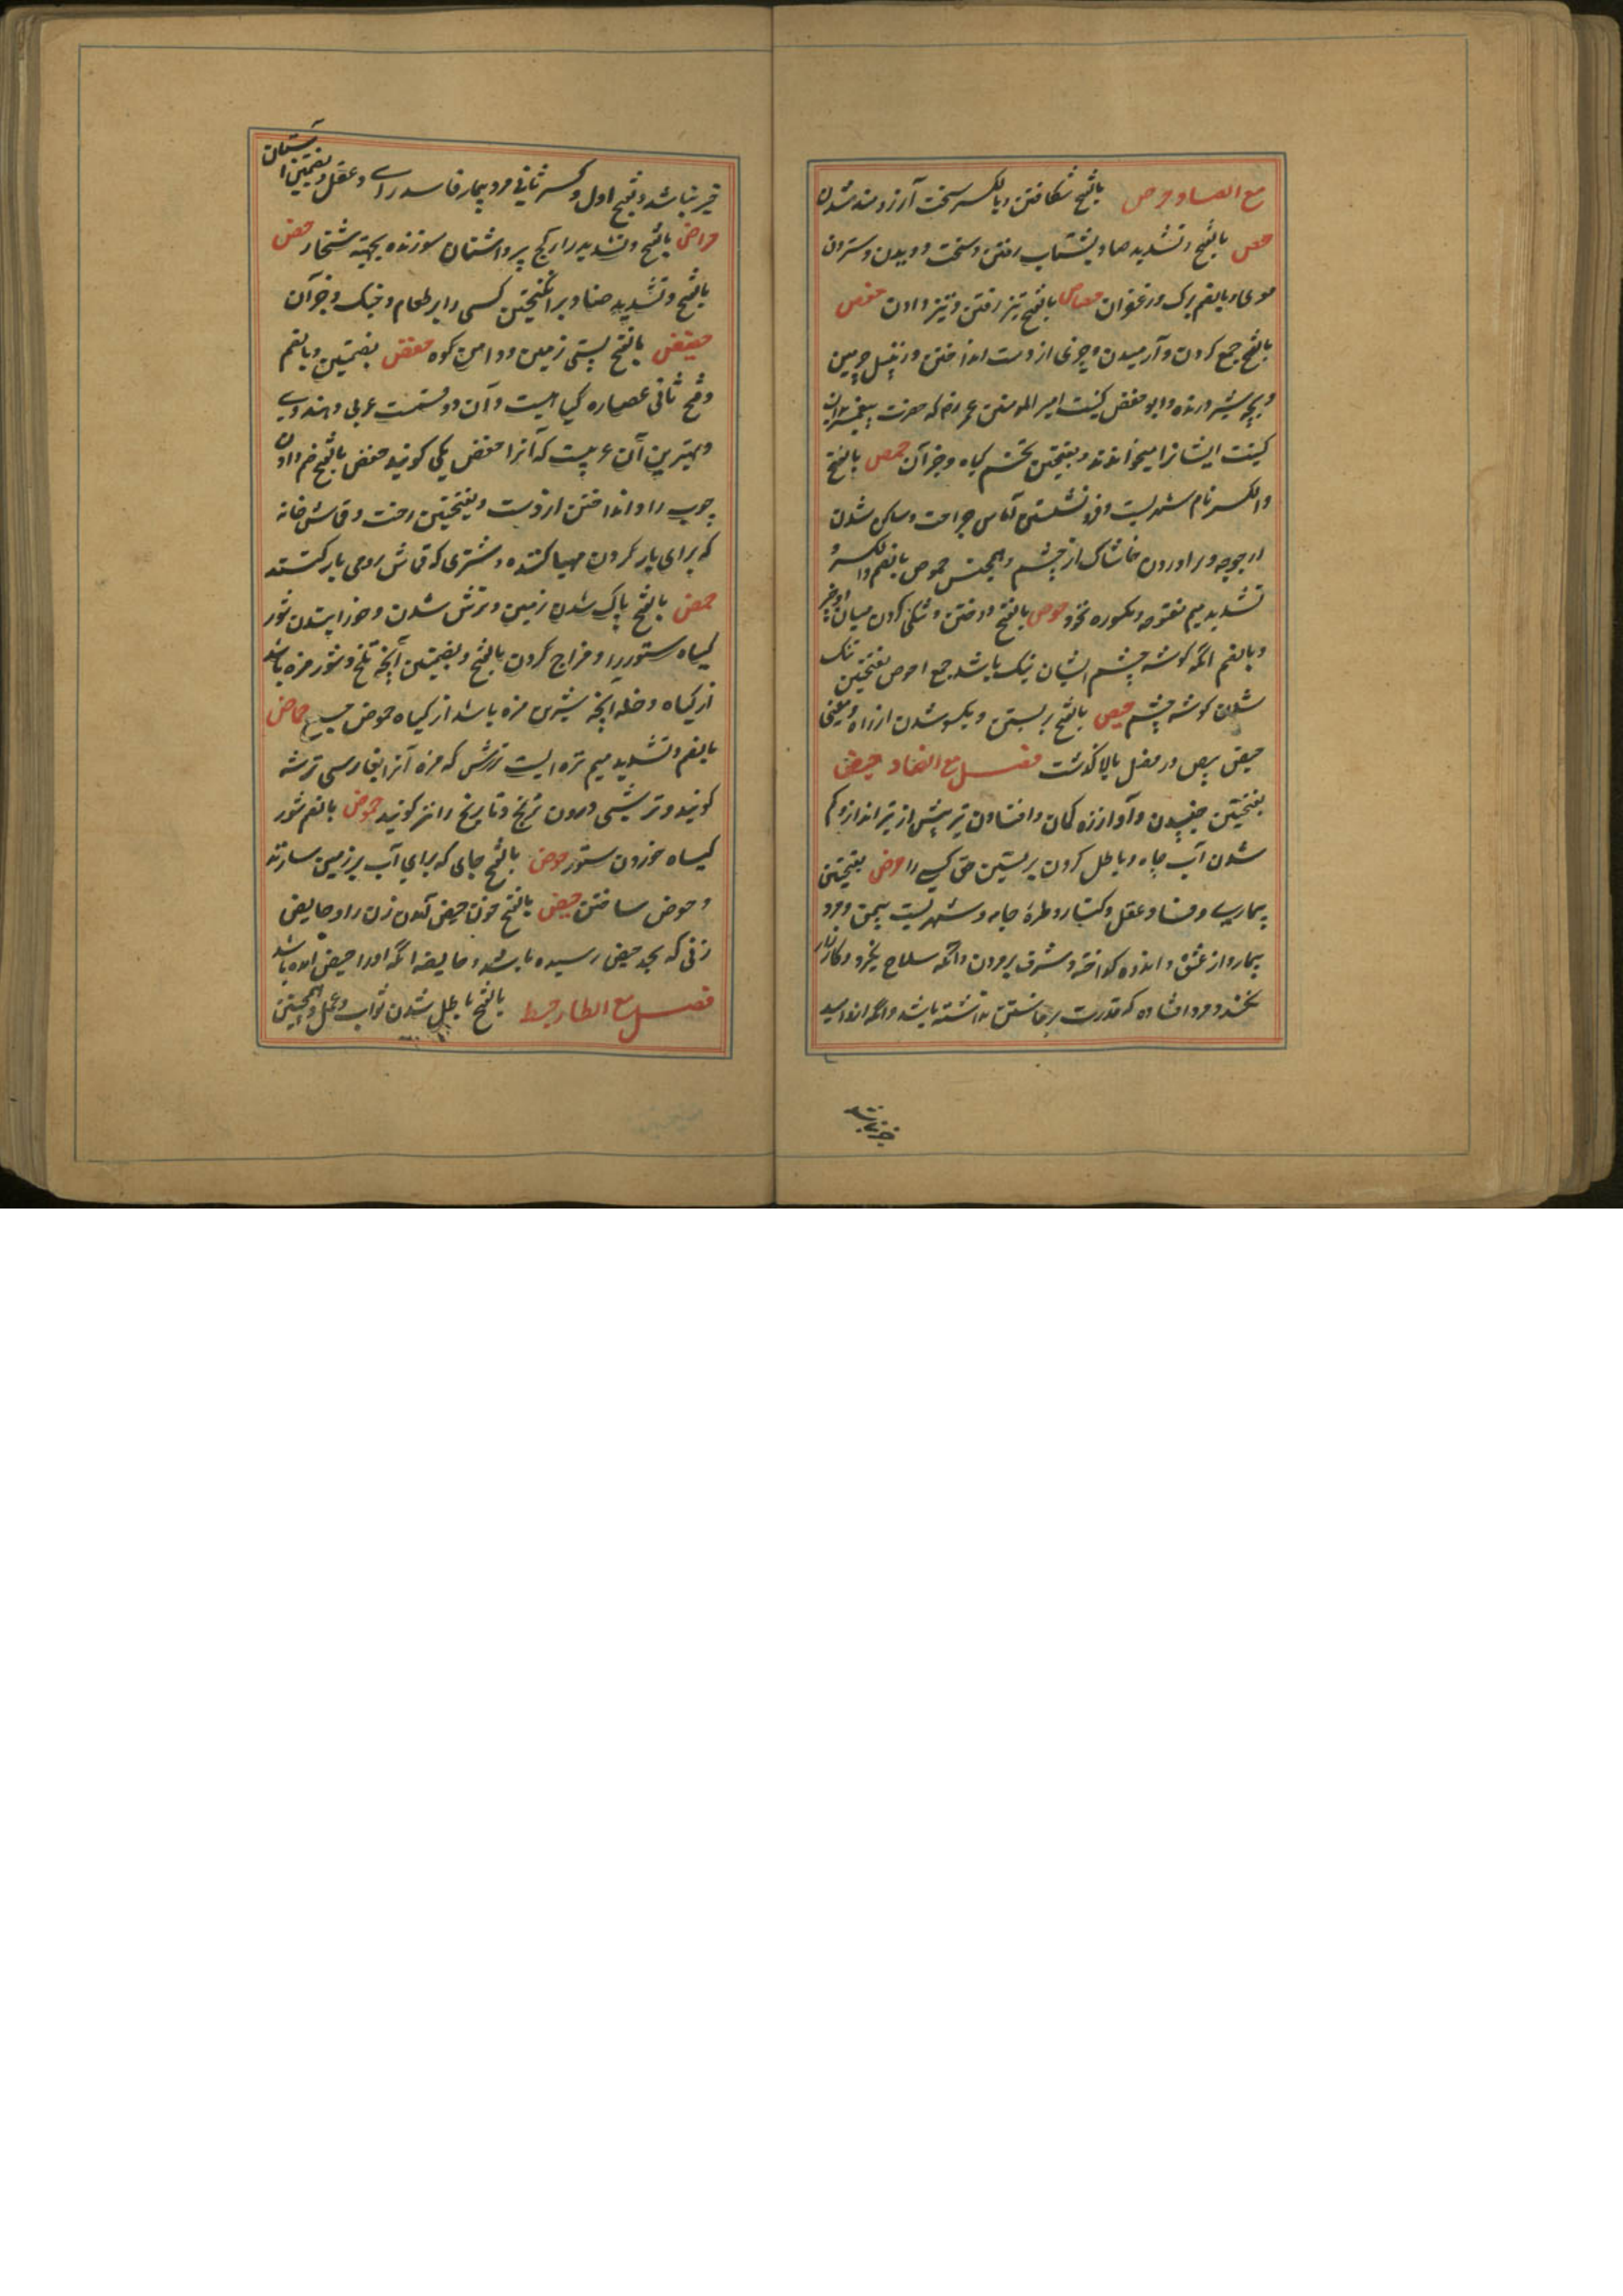 مع الصاد حرص بالفتح شكافتن و بالكسر سخت آرزومند شدن
حص بالفتح و تشدید صاد بشتاب رفتن و سخت دویدن و ستردن
موی را و بالضم برک و زعفران حصاص بالفتح تیز رفتن و تیز دادن حفص
بالفتح جمع کردن و آرمیدن و چیزی از دست انداختن و زنبیل چرمین
و بچه شیر درنده و ابو حفص کنیت امیر المومنین عمر رض که حضرت پیغمبر بدان
کنیت ایشانرا میخواندند و بفتحتین تخم کیاه و جز آن حمص بالفتح
و الکسر نام شهریست و فرو نشستن آماس جراحت و ساکن شدن
ارجوحه و بر اوردن خاشاک از چشم و همچنین حموص بالضم و الکسر و
تشدید میم مفتوحه و مکسوره نخود حوص بالفتح دوختن و تنکی کردن میان دو چیز
و بالضم انکه کوشه چشم ایشان تنک باشد جمع احوص بفتحتین تنک
شدن کوشه چشم حیص بالفتح بر کشتن و یکسو شدن از راه و معنی
حیص بیص در فصل بالا کذشت فصل مع الضاد حبض
بفتحتین جنبیدن و آواز زه کمان و افتادن تیر پیش از تیر انداز و کم
شدن آب چاه و باطل کردن بر یستن حق کسی را حرض بفتحتین
بیماری و فساد عقل و کنار و طره جامه و شهریست بیمن و مرد
بیمار و از عشق و اندوه کداخته و مشرف بمردن و انکه سلاح نکیرد و کارزار
نکند و مرد افتاده که قدرت برخاستن نداشته باشد و انکه ازو امید
خیر نباشد
خیر نباشد و بفتح اول و کسر ثانی مرد بیمار فاسد رای و عقل و بضمتین اشنان
حراض بالفتح و تشدید را رکج پز و اشنان سوزنده بجهته شخار حض
بالفتح و تشدید ضاد بر انکیختن کسی را بر طعام و جنک و جز آن
حضیض بالفتح پستی زمین و دامن کوه حضض بضمتین و بالضم
و فتح ثانی عصاره کیاهیست و آن دو قسمت عربی و هندوی
و بهترین آن عربیست که آنرا حضض مکی کویند حفض بالفتح خم دادن
چوب را و انداختن از دست و بفتحتین رخت و قماش خانه
که برای بار کردن مهیا کنند و شتری که قماش بروی بار کنند
حمض بالفتح پاک شدن زمین و ترش شدن و خورانیدن شور
کیاه ستور را و مزاج کردن بالفتح و بضمتین آنچه تلخ و شور مزه باشد
از کیاه و خله انچه شیرین مزه باشد از کیاه حموض جمع حماض
بالضم و تشدید میم تره ایست ترش که مزه آنرا بفارسی ترشه
کویند و ترشی درون ترنج و نارنج را نیز کویند حموض بالضم شور
کیاه خوردن ستور حوض بالفتح جای که برای آب بر زمین سازند
و حوض ساختن حیض بالفتح خون حیض آمدن زن را و حایض
زنی که بحد حیض رسیده باشد و حایضه انکه او را حیض آمده باشد
فصل مع الطاء حبط بالفتح باطل شدن ثواب و عمل و بفتحتین